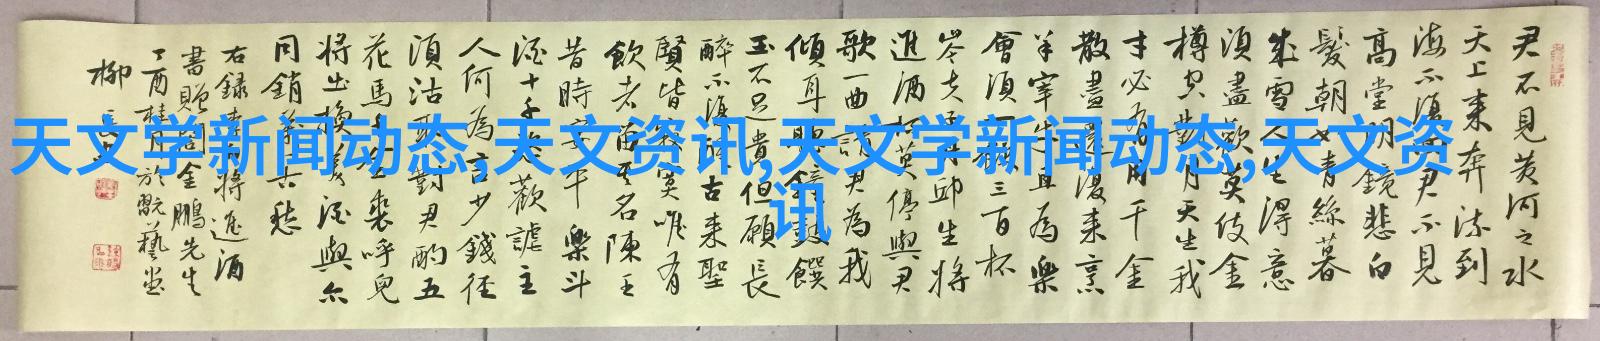 君不見黄河之水
天上来奔流到
海不復君不見
高堂明鏡悲白
髮朝如青絲暮
成雪人生得意
須盡歡莫使金
樽空對月天生我
才必有用千金
散盡還復来烹
羊宰牛且為樂
會須一三百杯
岑夫丹邱生將
進酒杯莫停與君
歌一曲請君為我
傾耳聽鐘鼓饌
玉不足貴但願長
醉不復古来聖
賢皆寂寞唯有
飲者留其名陳王
昔時宴平樂斗
酒十千恣歡謔主
人何為言少錢径
須沽取對君酌五
花馬千金裘呼兒
將出換美酒與尔
同銷萬古愁
右録李白將進酒
書贈閻金鵬先生
丁酉桂月於翫藝堂
柳
天文学新闻动态,天文资讯,天文学新闻动态,天文资
讯